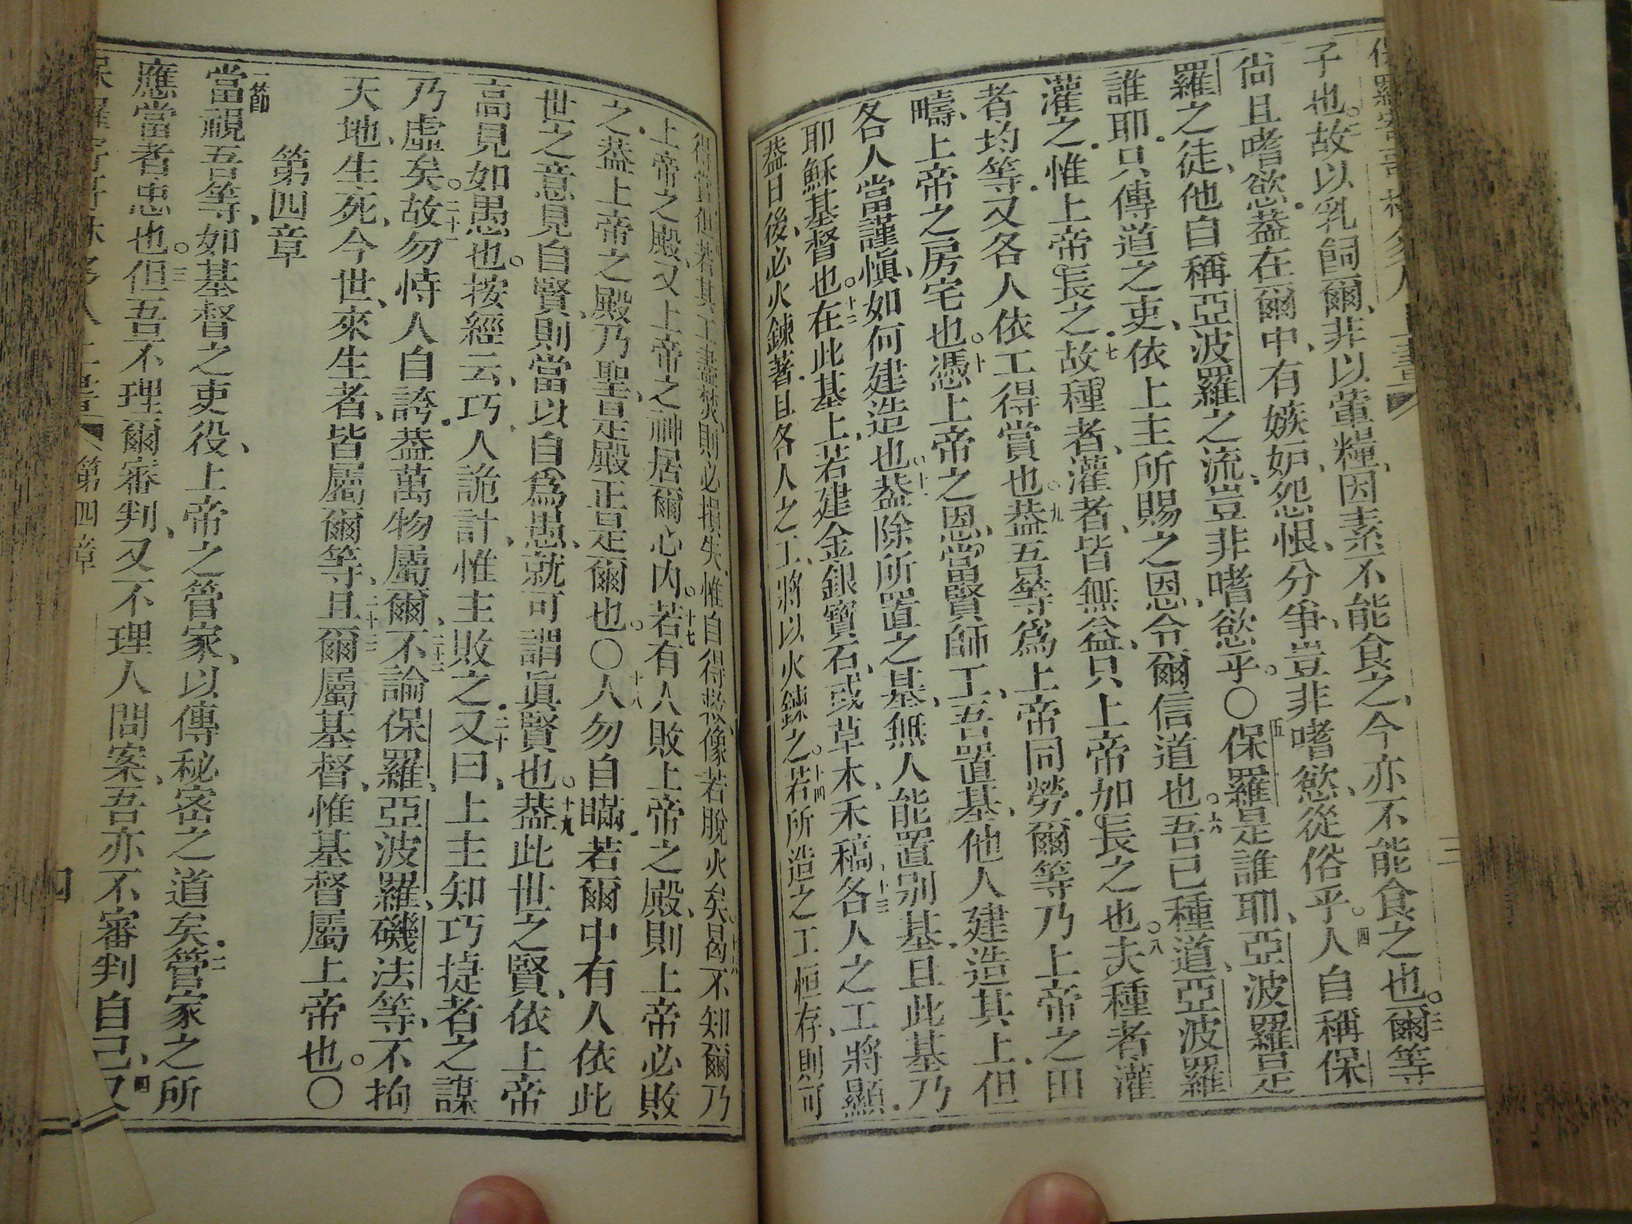 子也。故以乳飼爾、非以葷糧、因素不能食之、今亦不能食之也。三爾等
尙且嗜慾。葢在爾中、有嫉妒、怨恨、分爭、豈非嗜慾、從俗乎。四人自稱保
羅之徒、他自稱亞波羅之流、豈非嗜慾乎。〇五保羅是誰耶、亞波羅是
誰耶。只傳道之吏、依上主所賜之恩、令爾信道也。六吾已種道、亞波羅
灌之。惟上帝長之。七故種者、灌者、皆無益、只上帝加長之也。八夫種者灌
者均等。又各人依工得賞也。九葢吾等爲上帝同勞。爾等乃上帝之田
疇、上帝之房宅也。十憑上帝之恩、當賢師工、吾置基、他人建造其上。但
各人當謹愼、如何建造也。十一葢除所置之基、無人能置别基。且此基乃
耶穌基督也。十二在此基上、若建金銀寶石、或草木、禾稿、十三各人之工將顯。
葢日後、必火鍊著。且各人之工、將以火鍊之。十四若所造之工恒存、則可
得賞。但若其工盡焚、則必損失、惟自得救、像若脫火矣。十六曷不知爾乃
上帝之殿、又上帝之神居爾心內。十七若有人敗上帝之殿、則上帝必敗
之。葢上帝之殿乃聖、是殿正是爾也。〇十八人勿自瞞。若爾中有人依此
世之意見自賢、則當以自爲愚、就可謂眞賢也。十九葢此世之賢、依上帝
高見如愚也。按經云、巧人詭計、惟主敗之。二十又曰、上主知巧捷者之謀
乃虛矣。二十一故勿恃人自誇。葢萬物屬爾、二十二不論保羅、亞波羅、磯法等、不拘
天地、生死、今世、來生者、皆屬爾等、二十三且爾屬基督、惟基督屬上帝也。〇
第四章
一節當視吾等、如基督之吏役、上帝之管家、以傳秘密之道矣。二管家之所
應當者忠也。三但吾不理爾審判、又不理人問案、吾亦不審判自己、四又
第四章
四